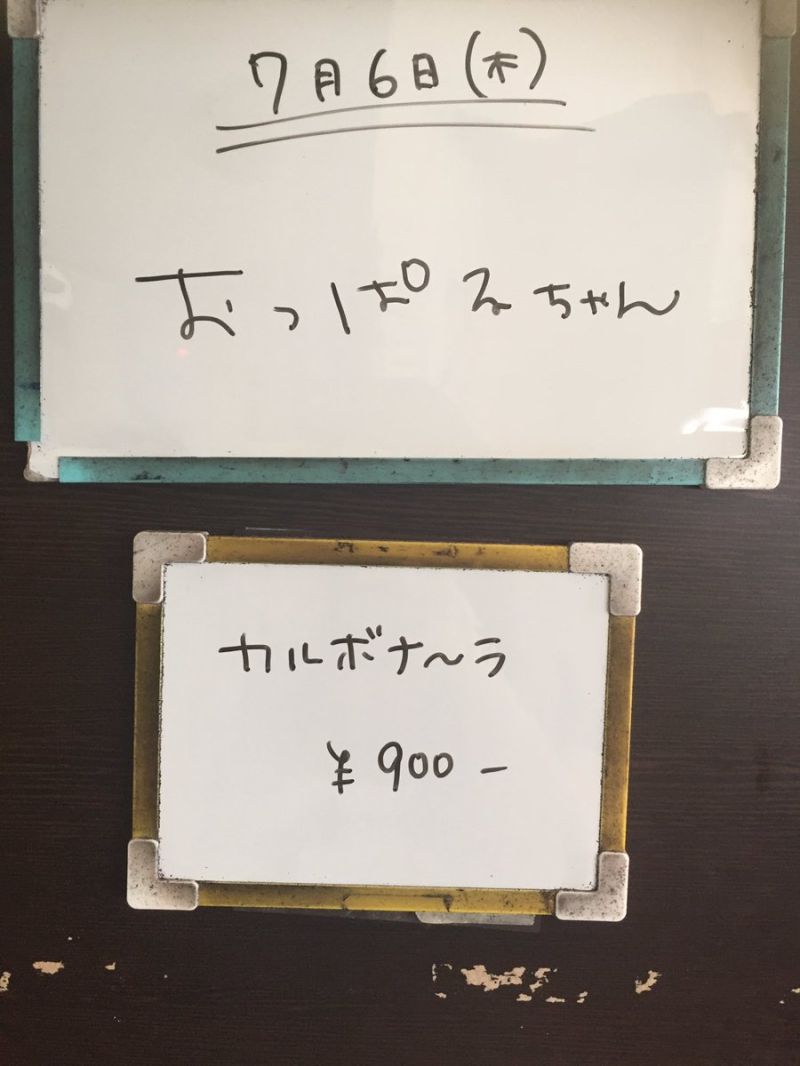 7月6日(木)
おっぱるちゃん
カルボナ〜ラ
¥900-